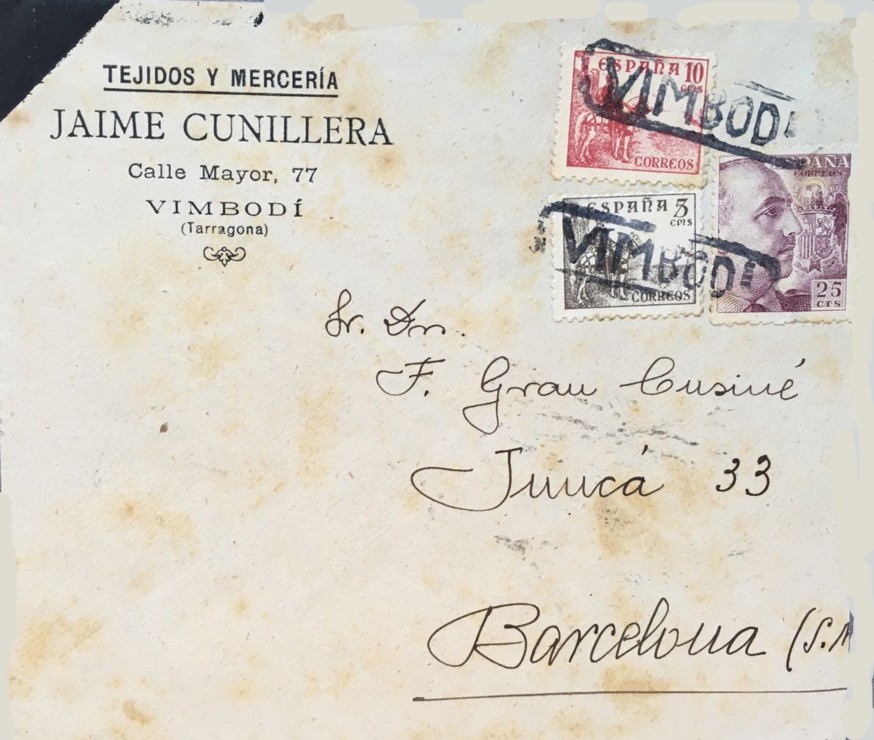 TEJIDOS Y MERCERÍA
JAIME CUNILLERA
Calle Mayor, 77
VIMBODÍ
(Tarragona)
ESPAÑA 10
cms
CORREOS
VIMBODÍ
ESPAÑA
CORREOS
25
CTS
ESPAÑA 5
cms
CORREOS
VIMBODÍ
Sr. Dn.
F. Grau Cusiné
Juncá 33
Barcelona (S.M